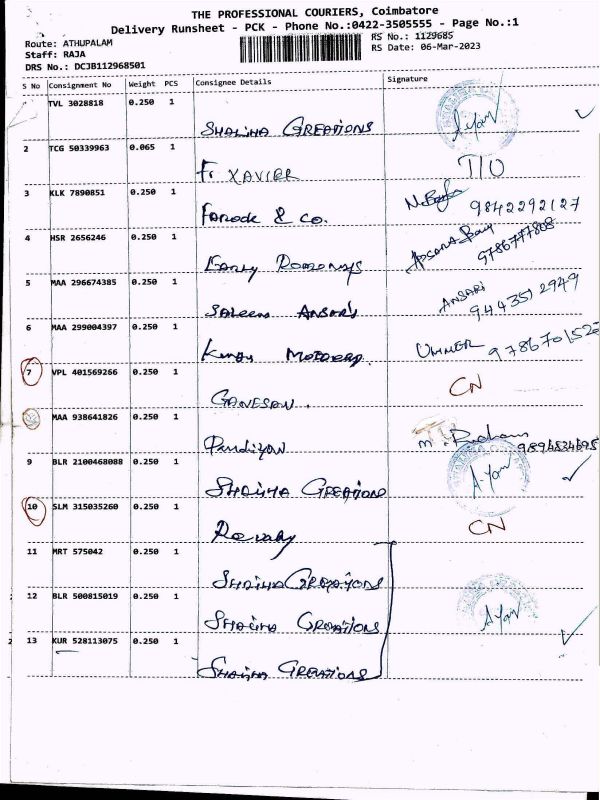 THE PROFESSIONAL COURIERS, Coimbatore
Delivery Runsheet - PCK - Phone No.:0422-3505555 - Page No.:1
Route: ATHUPALAM RS No.: 1129685
Staff: RAJA RS Date: 06-Mar-2023
DRS No.: DCJB112968501
S No Consignment No Weight PCS Consignee Details Signature
TVL 3028818 0.250 1
SHALIHA CREATIONS
2 TCG 50339963 0.065 1
Fr XAVIER T/O
3 KLK 7890851 0.250 1
Farook & Co. 9842292127
4 HSR 2656246 0.250 1
9786777808
5 MAA 296674385 0.250 1
Saleem Ansari ANSARI 944351 2949
6 MAA 299004397 0.250 1
UMMER
7 VPL 401569266 0.250 1
GANESAN. CN
MAA 938641826 0.250 1
Pandiyan
9 BLR 2100468088 0.250 1
SHALIHA CREATIONS
10 SLM 315035260 0.250 1
Revathy CN
11 MRT 575042 0.250 1
SHALIHA CREATIONS
12 BLR 500815019 0.250 1
SHALIHA CREATIONS
13 KUR 528113075 0.250 1
SHALIHA CREATIONS